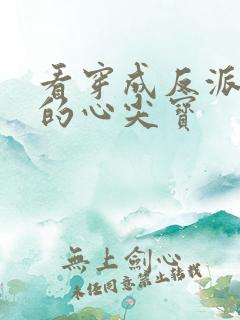 看穿成反派
的心尖寶
無上劍心
未经同意禁止转载